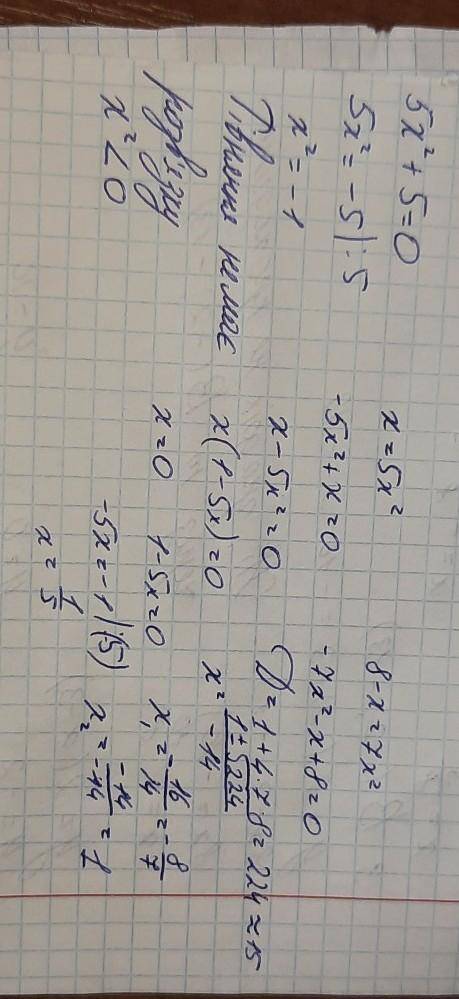 5x² + 5 = 0
5x² = -5 | :5
x² = -1
Рівняння не має
розв'язку
x² < 0
x = 5x²
-5x² + x = 0
x - 5x² = 0
x(1 - 5x) = 0
x = 0 1 - 5x = 0
-5x = -1 | :(5)
x = 1/5
8 - x = 7x²
-7x² - x + 8 = 0
D = 1 + 4 · 7 · 8 = 224 ≈ 15
x² 1 ± √224 / -14
x₁ = -16/14 = -8/7
x₂ = -14/-14 = 1